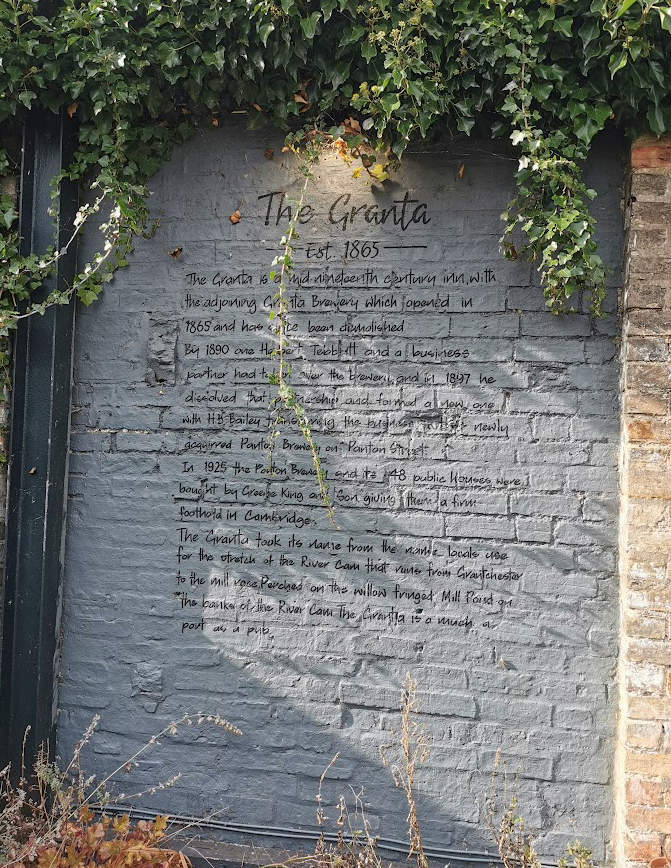 The Granta
Est. 1865
The Granta is a mid nineteenth century inn, with
the adjoining Granta Brewery which opened in
1865 and has quite been demolished
By 1890 one Herbert Tebbutt and a business
partner had taken over the brewery, and in 1897 he
dissolved that partnership and formed a new one
with H.B. Bailey transferring the business newly
acquired Panton Brewery on Panton Street.
In 1925 the Panton Brewery and its 48 public houses were
bought by Greene King and Son giving them a firm
foothold in Cambridge.
The Granta took its name from the name locals use
for the stretch of the River Cam that runs from Grantchester
to the mill race. Perched on the willow fringed, Mill Pond on
the banks of the River Cam The Granta is a much a
part as a pub.